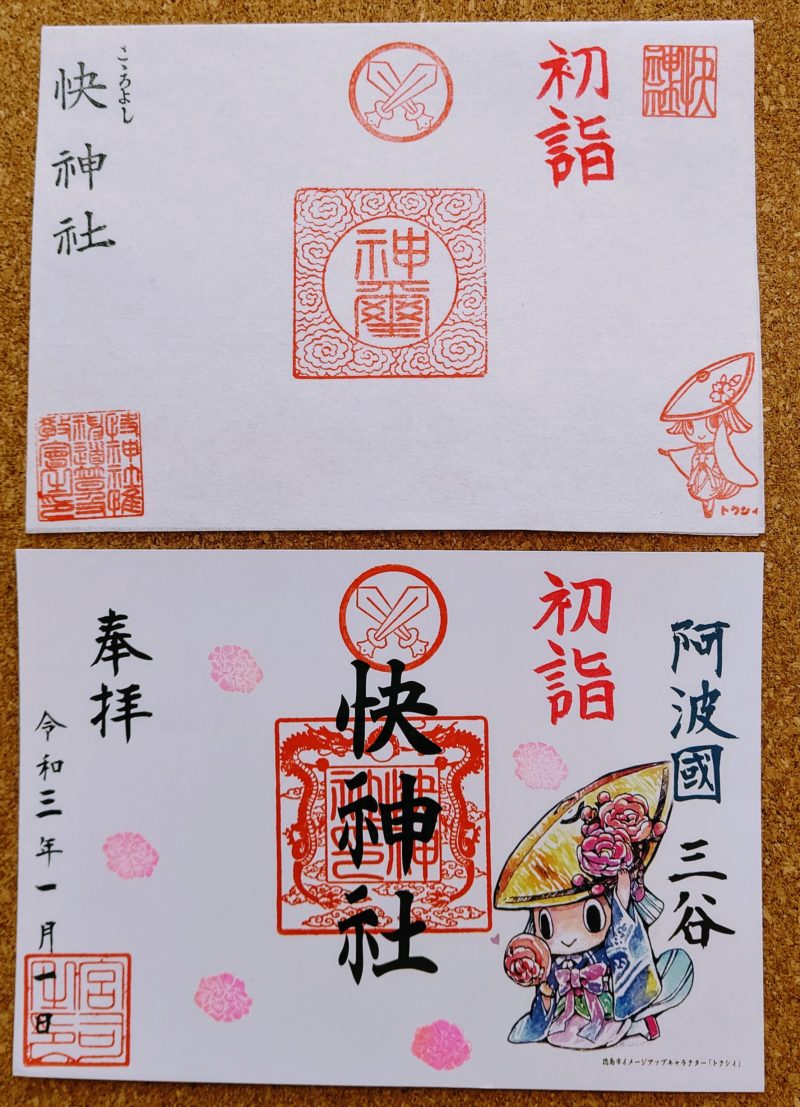 快神社
初詣
こころよし
快神社
神璽
トクシィ
阿波國 三谷
初詣
快神社
奉拝
令和三年一月一日
徳島市イメージアップキャラクター「トクシィ」